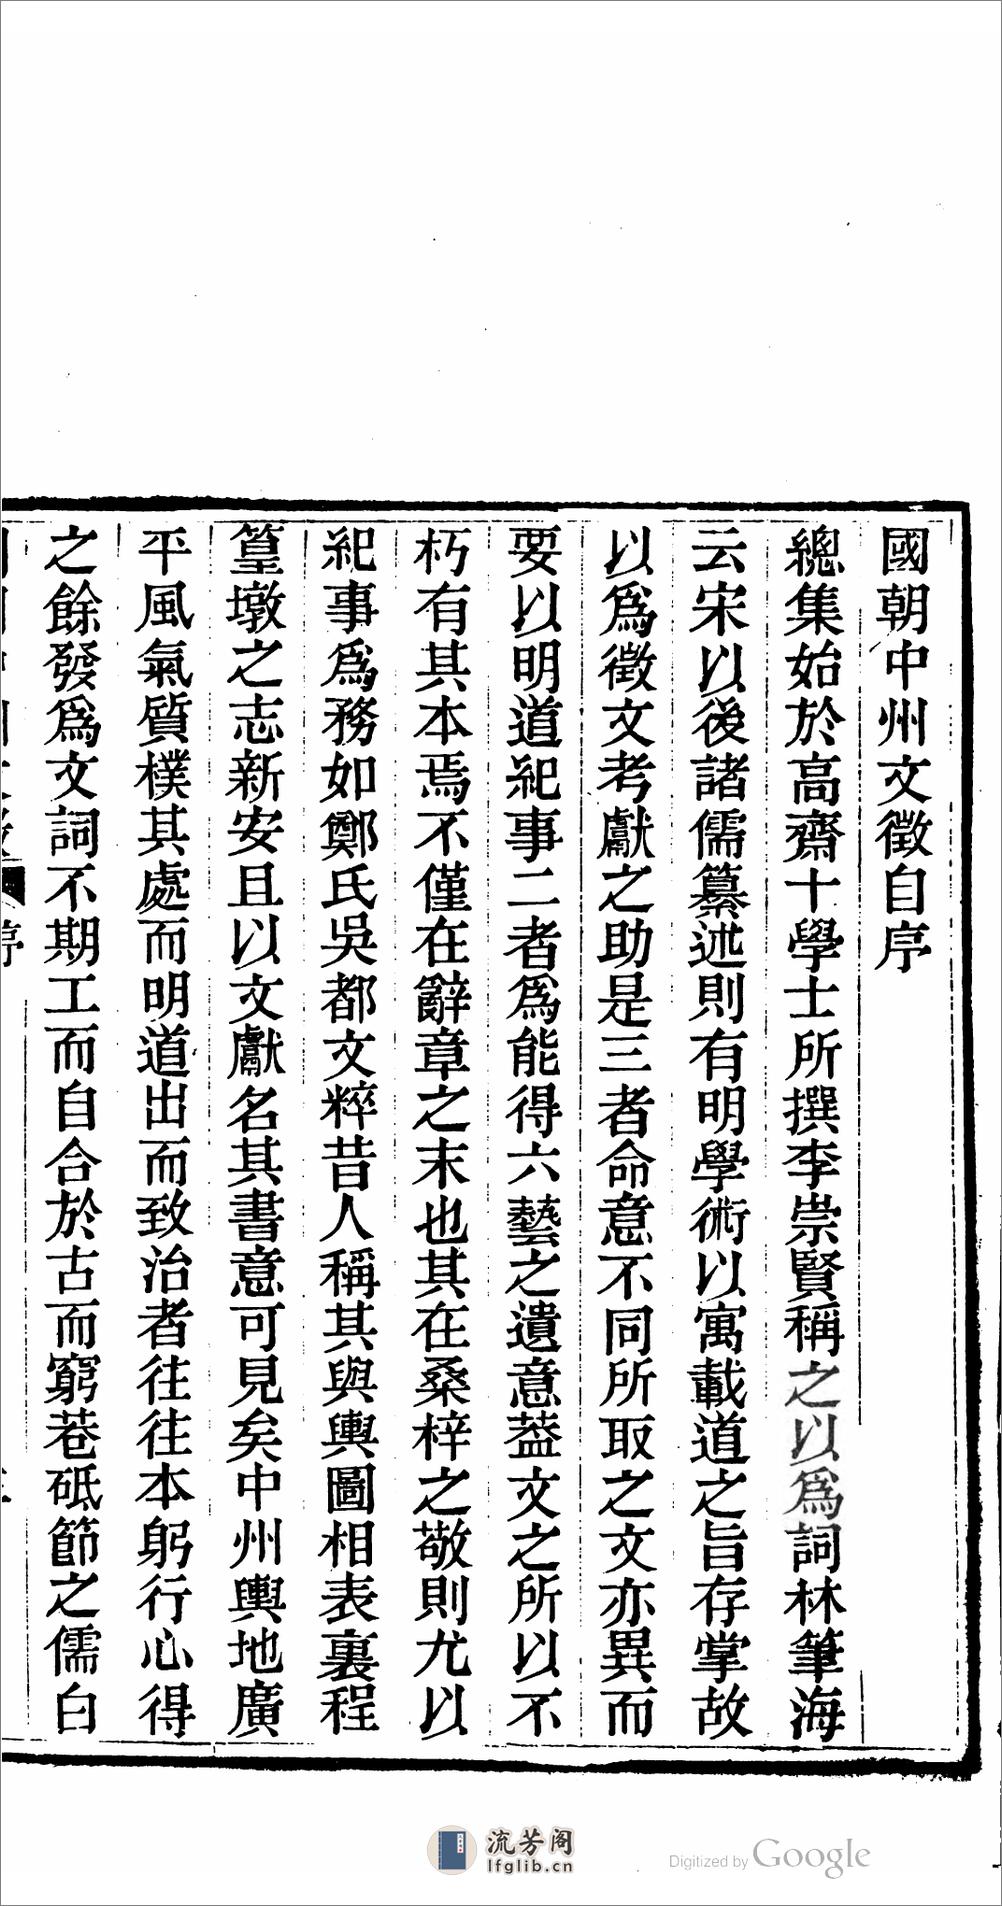 國朝中州文徵自序
總集始於高齋十學士所撰李崇賢稱之以爲詞林筆海
云宋以後諸儒纂述則有明學術以寓載道之旨存掌故
以爲徵文考獻之助是三者命意不同所取之文亦異而
要以明道紀事二者爲能得六藝之遺意葢文之所以不
朽有其本焉不僅在辭章之末也其在桑梓之敬則尤以
紀事爲務如鄭氏吳都文粹昔人稱其與輿圖相表裏程
篁墩之志新安且以文獻名其書意可見矣中州輿地廣
平風氣質樸其處而明道出而致治者往往本躬行心得
之餘發爲文詞不期工而自合於古而窮巷砥節之儒白
序
流芳阁
lfglib.cn
Digitized by Google